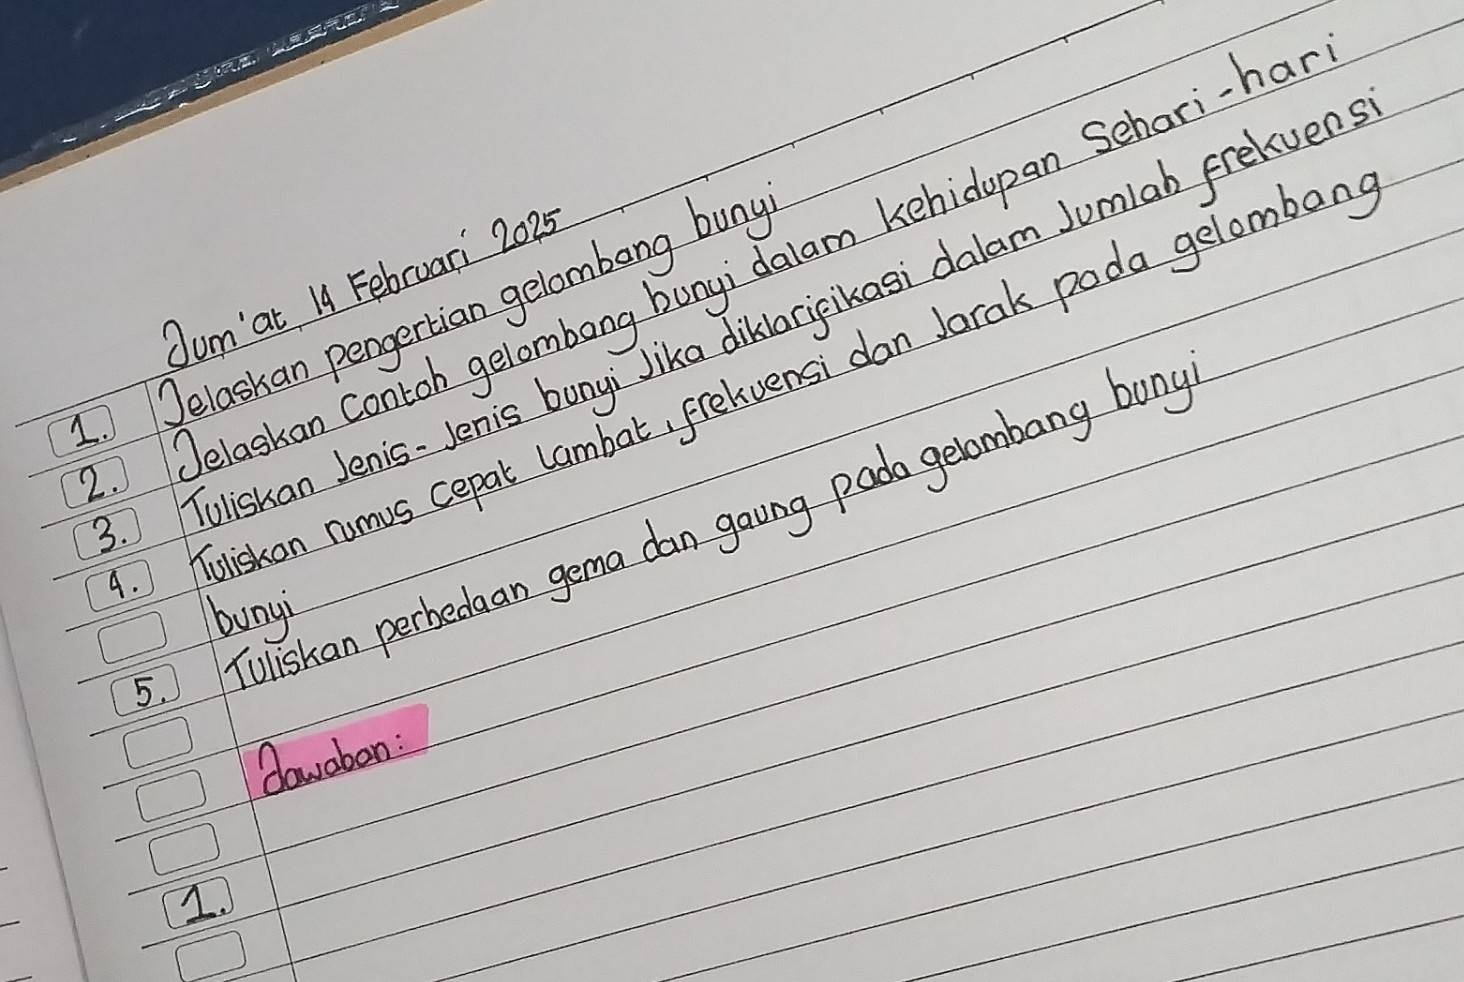 Jum'at, 14 Februari 2025
1. Jelaskan pengertian gelombang bunyi
2. Jelaskan contoh gelombang bunyi dalam kehidupan Sehari-hari
3. Tuliskan Jenis-Jenis bunyi Jika diklarifikasi dalam Jumlah frekuensi
4. Tuliskan rumus cepat lambat, frekuensi dan Jarak pada gelombang
bunyi
5. Tuliskan perbedaan gema dan gaung pada gelombang bunyi
Jawaban:
1.